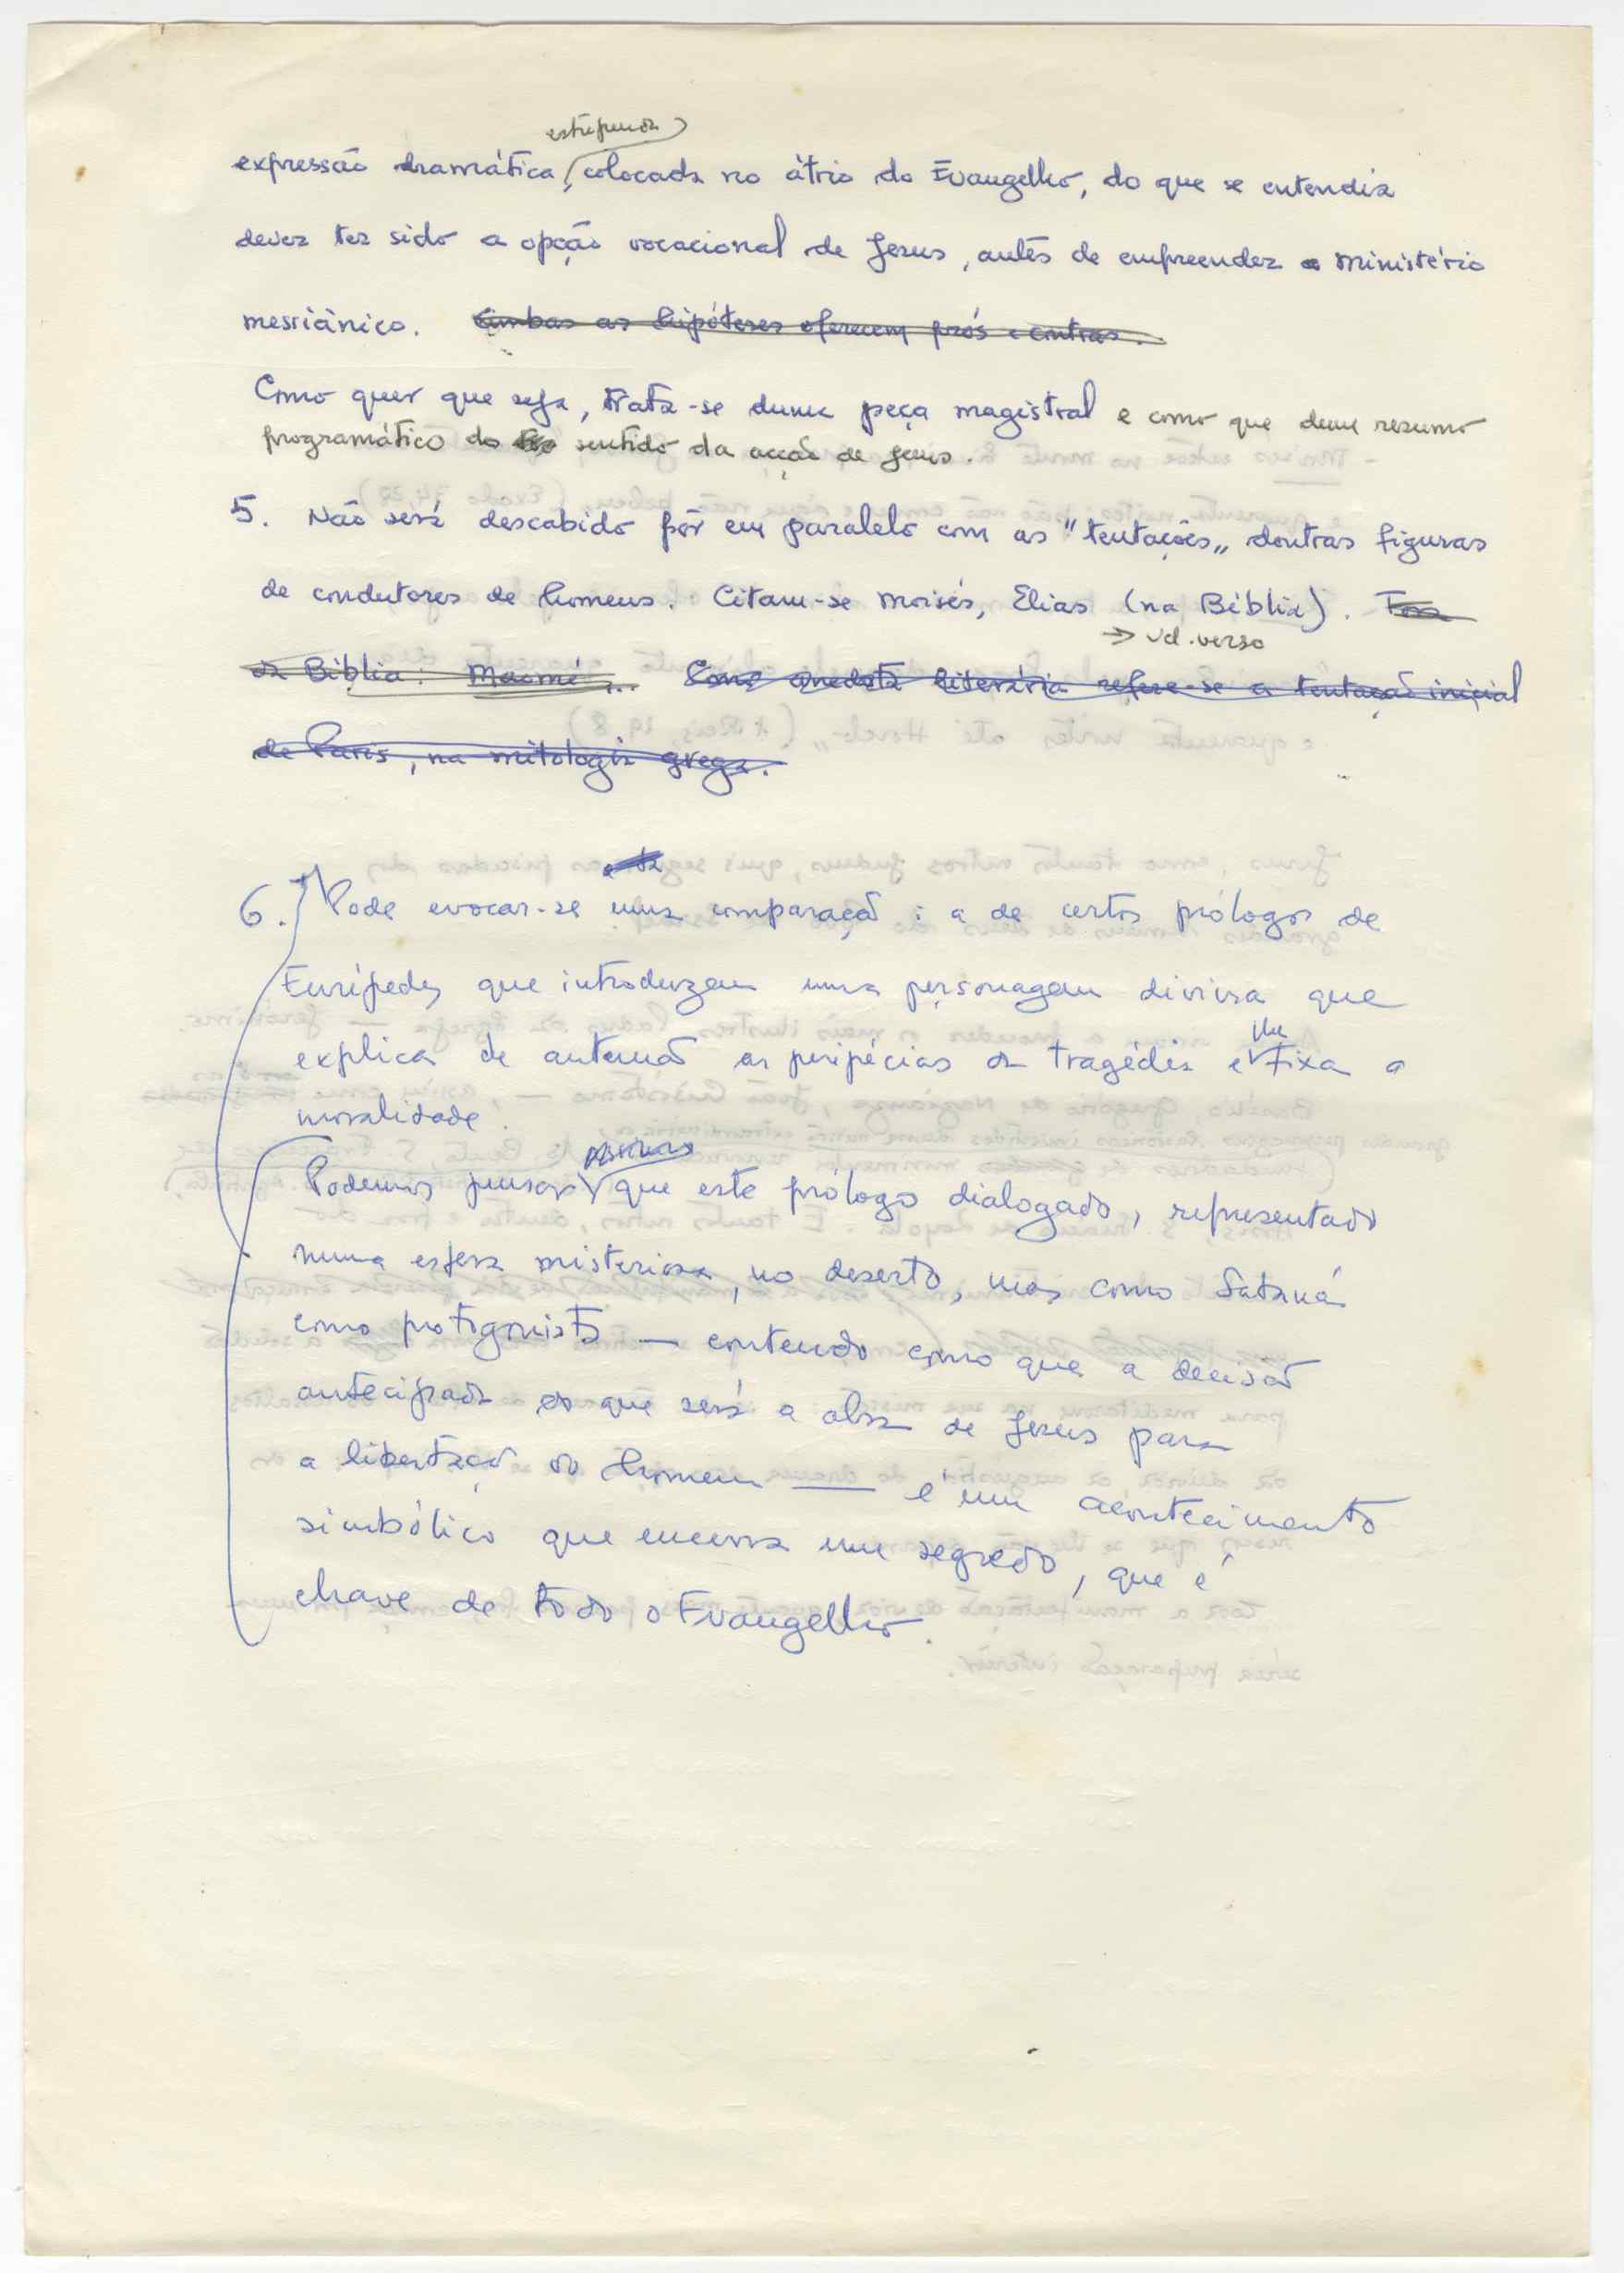 estupenda
expressão dramática, colocada no átrio do Evangelho, do que se entendia
dever ter sido a opção vocacional de Jesus, antes de empreender o ministério
messiânico. Ambas as hipóteses oferecem prós e contras.
Como quer que seja, trata-se duma peça magistral e como que dum resumo
programático do sentido da acção de Jesus.
5. Não será descabido pôr em paralelo com as "tentações" doutras figuras
de condutores de homens. Citam-se Moisés, Elias (na Bíblia). Fora
→ vd. verso
da Bíblia: Maomé... Como anedota literária refere-se a tentação inicial
de Paris, na mitologia grega.
6. Pode evocar-se uma comparação: a de certos prólogos de
Eurípedes que introduzem uma personagem divina que
explica de antemão as peripécias da tragédia e lhe fixa a
moralidade.
Podemos pensar que este prólogo dialogado, representado
numa esfera misteriosa, no deserto, mas como Satanás
como protagonista — contendo como que a decisão
antecipada do que será a obra de Jesus para
a libertação do homem — é um acontecimento
simbólico que encerra um segredo, que é
chave de todo o Evangelho.